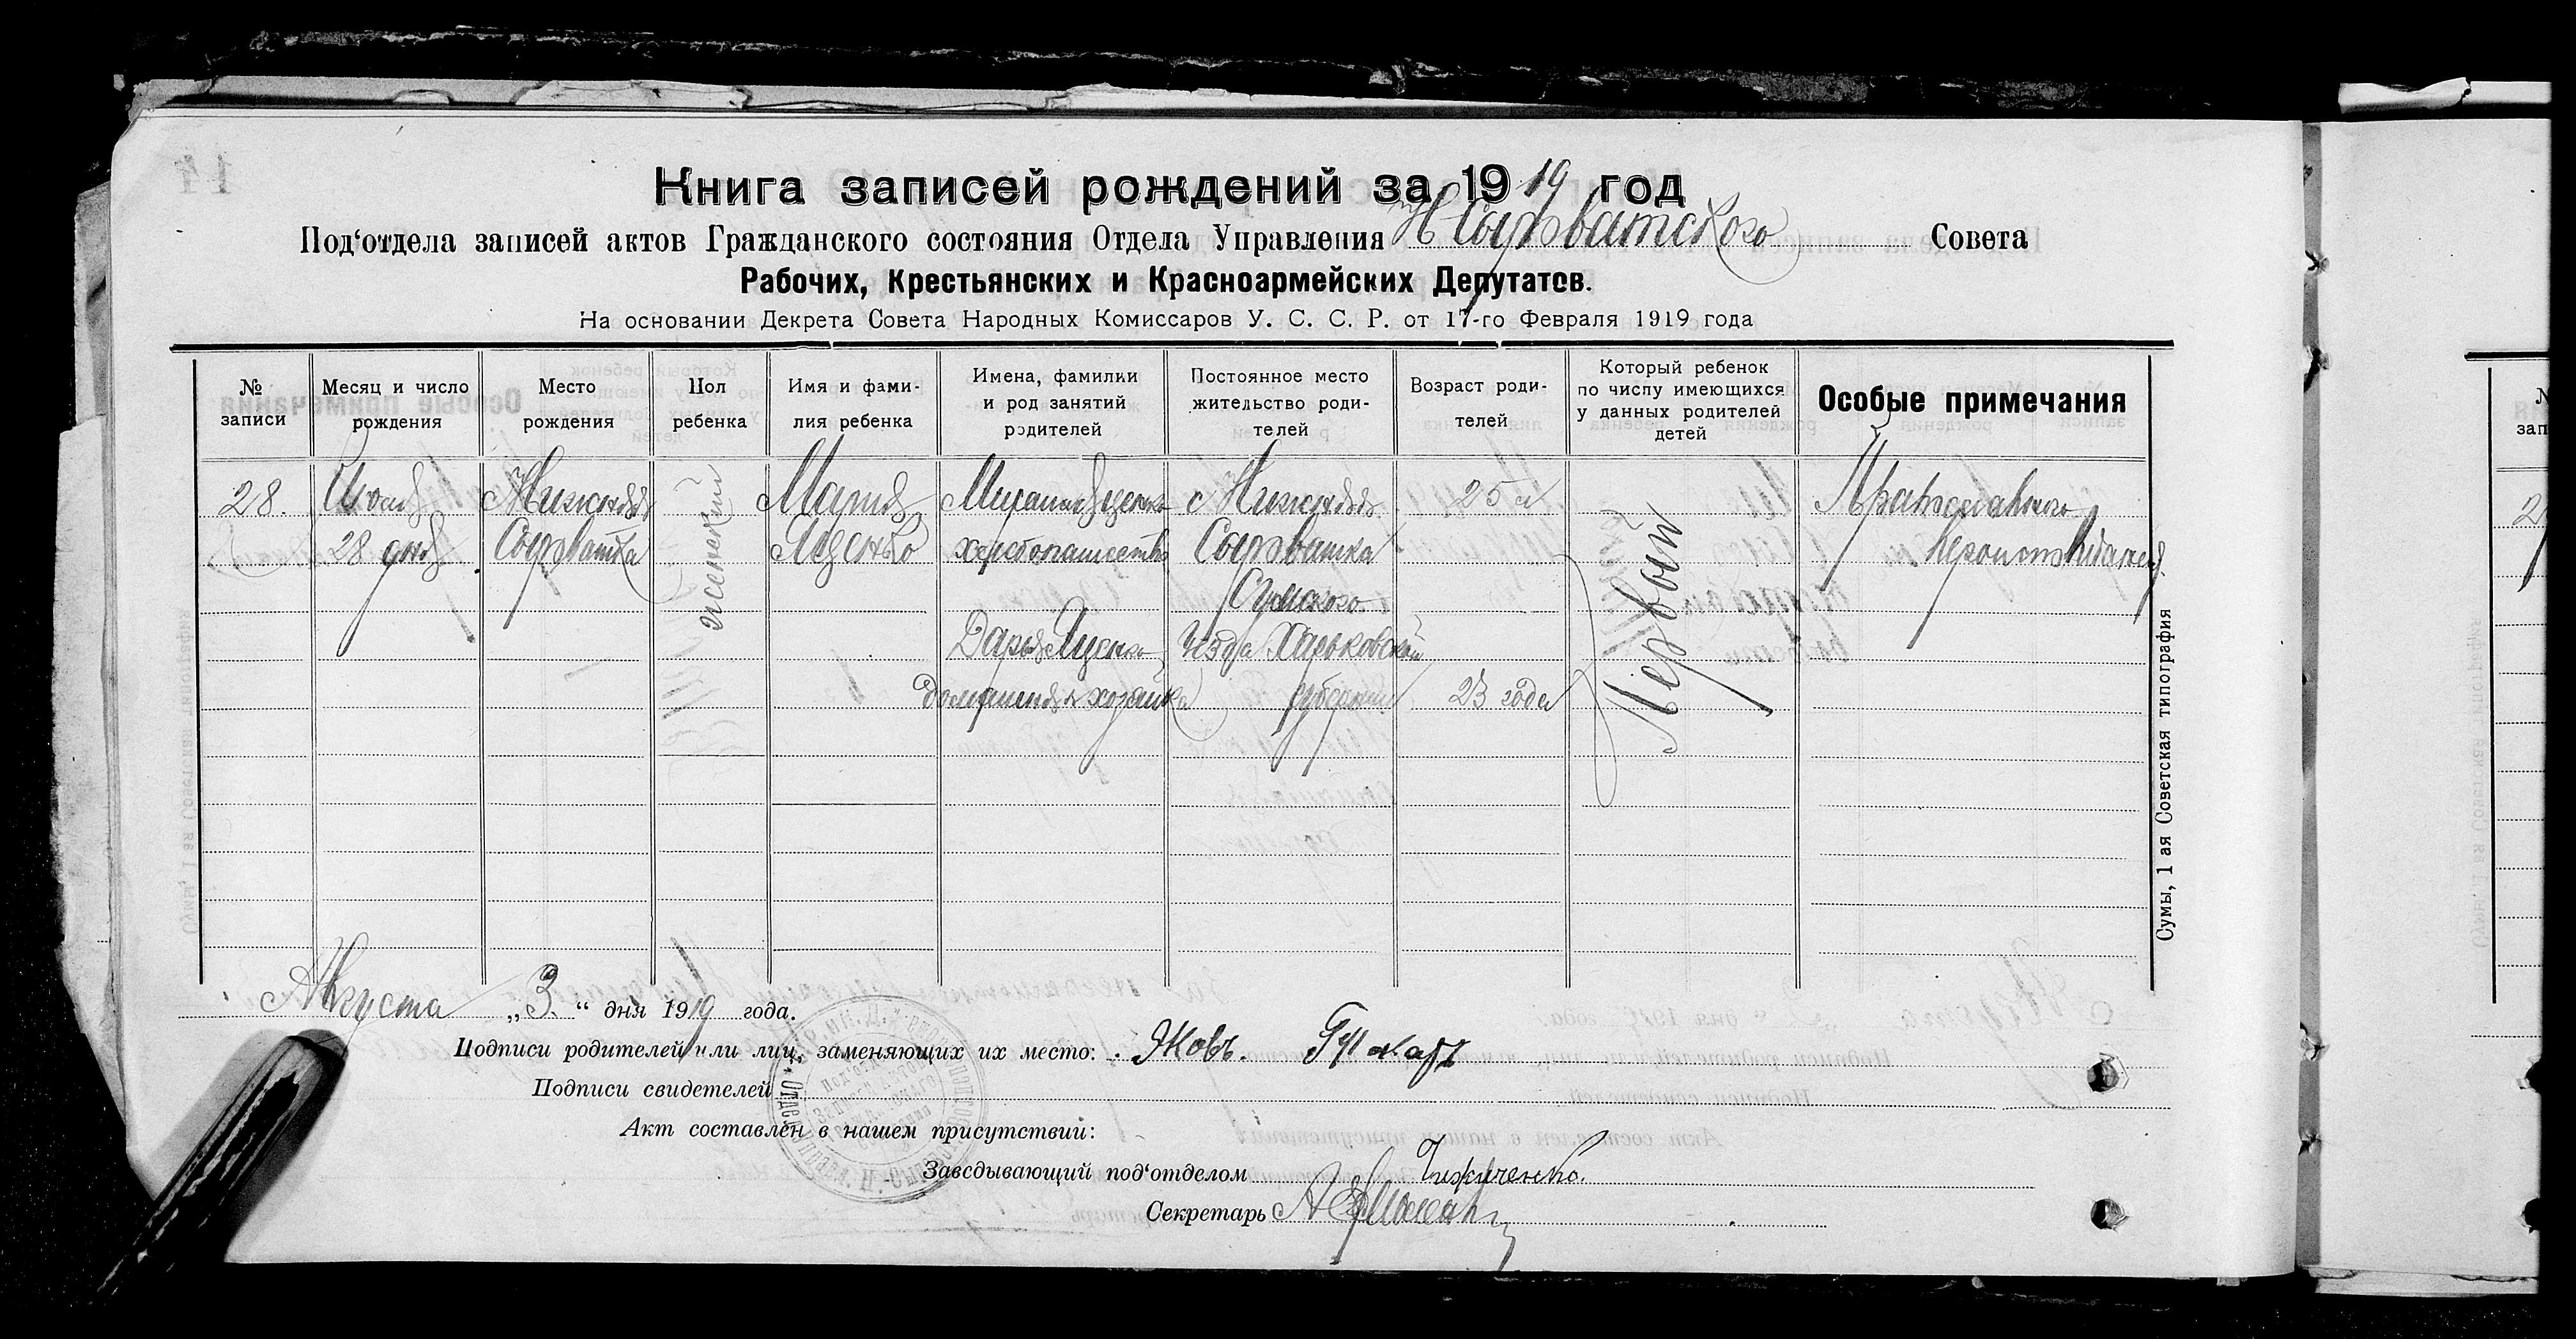 Книга записей рождений за 1919 год
Под‘отдела записей актов Гражданского состояния Отдела Управления Н Сыроватского Совета
Рабочих, Крестьянских и Красноармейских Депутатов.
На основании Декрета Совета Народных Комиссаров У. С. С. Р. от 17-го Февраля 1919 года
№ записи
Месяц и число рождения
Место рождения
Пол ребенка
Имя и фамилия ребенка
Имена, фамилии и род занятий родителей
Постоянное место жительство родителей
Возраст родителей
Который ребенок по числу имеющихся у данных родителей детей
Особые примечания
28.
Июля
28 дня
Нижняя
Сыроватка
женский
Мария
Яценко
Михаил Яценко
хлебопашество
Дарья Яценко
домашняя хозяйка
с Нижняя
Сыроватка
Сумского
уезда Харьковской
губернии
25 л
23 года
Первый
Православного
вероисповедания
Августа „3.“ дня 1919 года.
Подписи родителей или лиц, заменяющих их место: Яковъ.
Подписи свидетелей
Акт составлен в нашем присутствий:
Заведывающий под‘отделом Чижиченко.
Секретарь
Сумы, 1 ая Советская типография